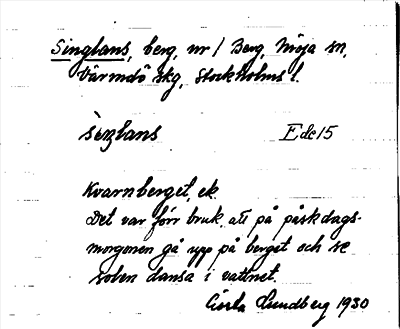 Singlans, berg, nr 1 Berg, Möja sn,
Värmdö skg, Stockholms l.
Edc 15
Kvarnberget, ek.
Det var förr bruk att på påskdags-
morgonen gå upp på berget och se
solen dansa i vattnet.
Gösta Lundberg 1930